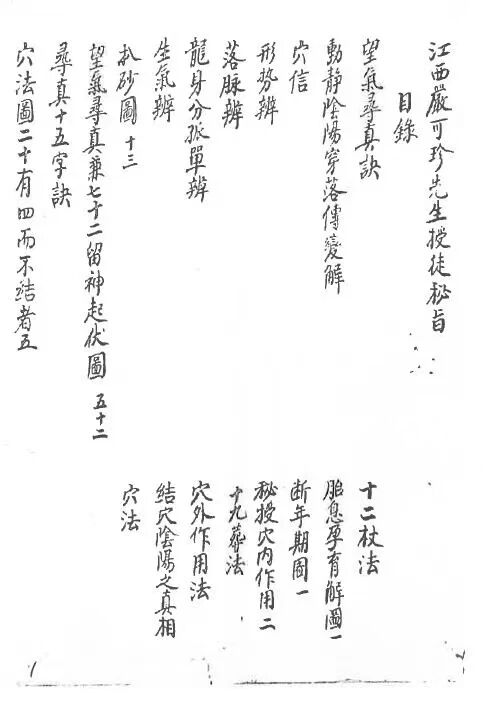 江西嚴可珍先生授徒秘旨
目錄
望氣尋真訣
動靜陰陽穿落傳變解
穴信
形勢辨
落脉辨
龍身分孤單辨
生氣辨
扒砂圖 十三
望氣尋真兼七十二留神起伏圖 五十二
尋真十五字訣
穴法圖二十有四而不结者五
十二杖法
胎息孕育解圖一
断年期圖一
秘授穴内作用二
十九葬法
穴外作用法
結穴陰陽之真相
穴法
1